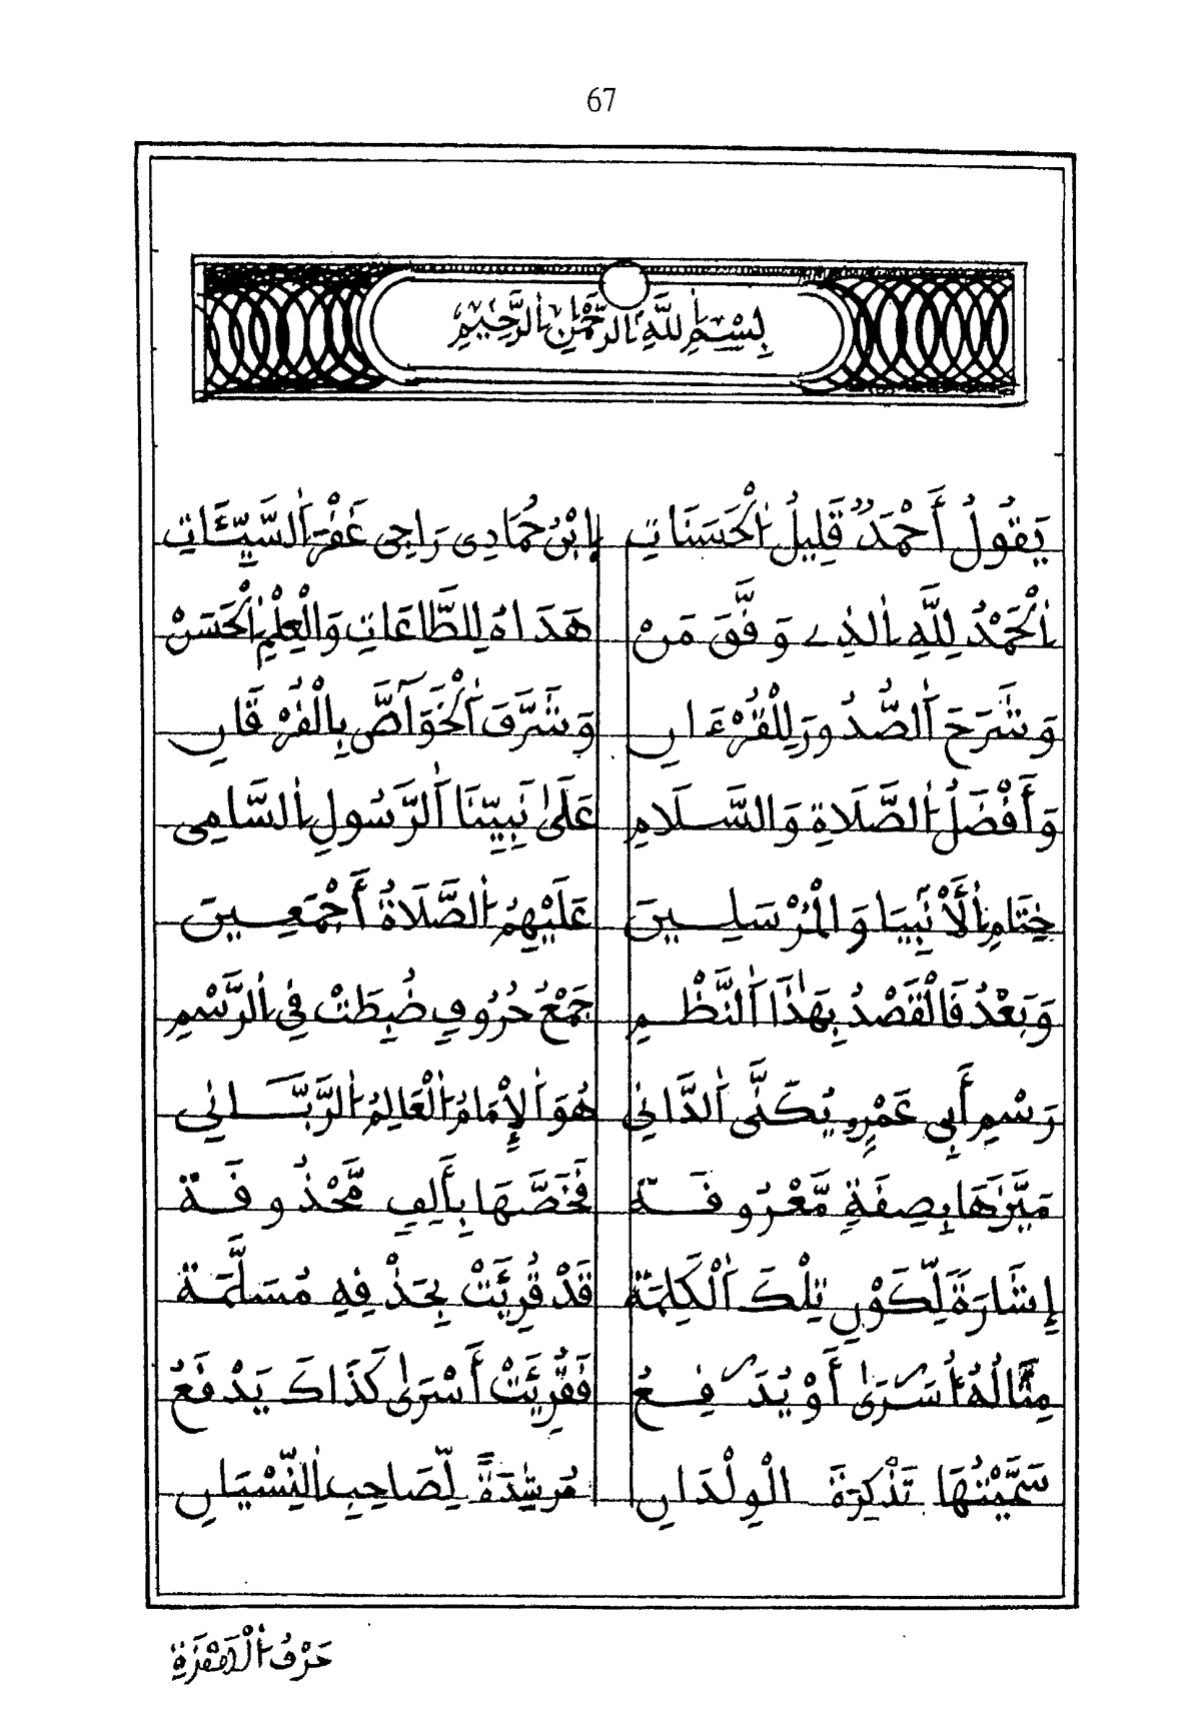 67
بِسْمِ اللَّهِ الرَّحْمَٰنِ الرَّحِيمِ
يَقُولُ أَحْمَدٌ قَلِيلُ الْحَسَنَاتِ إِبْنُ حُمَادِى رَاجِى غَفْرَ السَّيِّئَاتِ
الْحَمْدُ لِلَّهِ الذِے وَفَّقَ مَنْ هَدَاهُ لِلطَّاعَاتِ وَالْعِلْمِ الْحَسَنْ
وَشَرَحَ الصُّدُورَ لِلْقُرْءَانِ وَشَرَّفَ الْخَوَآصَّ بِالْفُرْقَانِ
وَأَفْضَلُ الصَّلَاةِ وَالسَّلَامِ عَلَىٰ نَبِيِّنَا الرَّسُولِ السَّامِى
خِتَامِ الْأَنْبِيَا وَالْمُرْسَلِينَ عَلَيْهِمُ الصَّلَاةُ أَجْمَعِينَ
وَبَعْدُ فَالْقَصْدُ بِهَٰذَا النَّظْمِ جَمْعُ حُرُوفٍ ضُبِطَتْ فِي الرَّسْمِ
رَسْمِ أَبِي عَمْرٍو يُكَنَّى الدَّانِي هُوَ الْإِمَامُ الْعَالِمُ الرَّبَّانِي
مَيَّزَهَا بِصِفَةٍ مَّعْرُوفَة فَخَصَّهَا بِأَلِفٍ مَّحْذُوفَة
إِشَارَةً لِّكَوْنِ تِلْكَ الْكَلِمَة قَدْ قُرِئَتْ بِحَذْفِهِ مُسَلَّمَة
مِثَالُهُ أُسَٰرَىٰ أَوْ يُدَٰفِعُ فَقُرِئَتْ أَسْرَىٰ كَذَاكَ يَدْفَعُ
سَمَّيْتُهَا تَذْكِرَةَ الْوِلْدَانِ مُرْشِدَةً لِّصَاحِبِ النِّسْيَانِ
حَرْفُ الْهَمْزَةِ